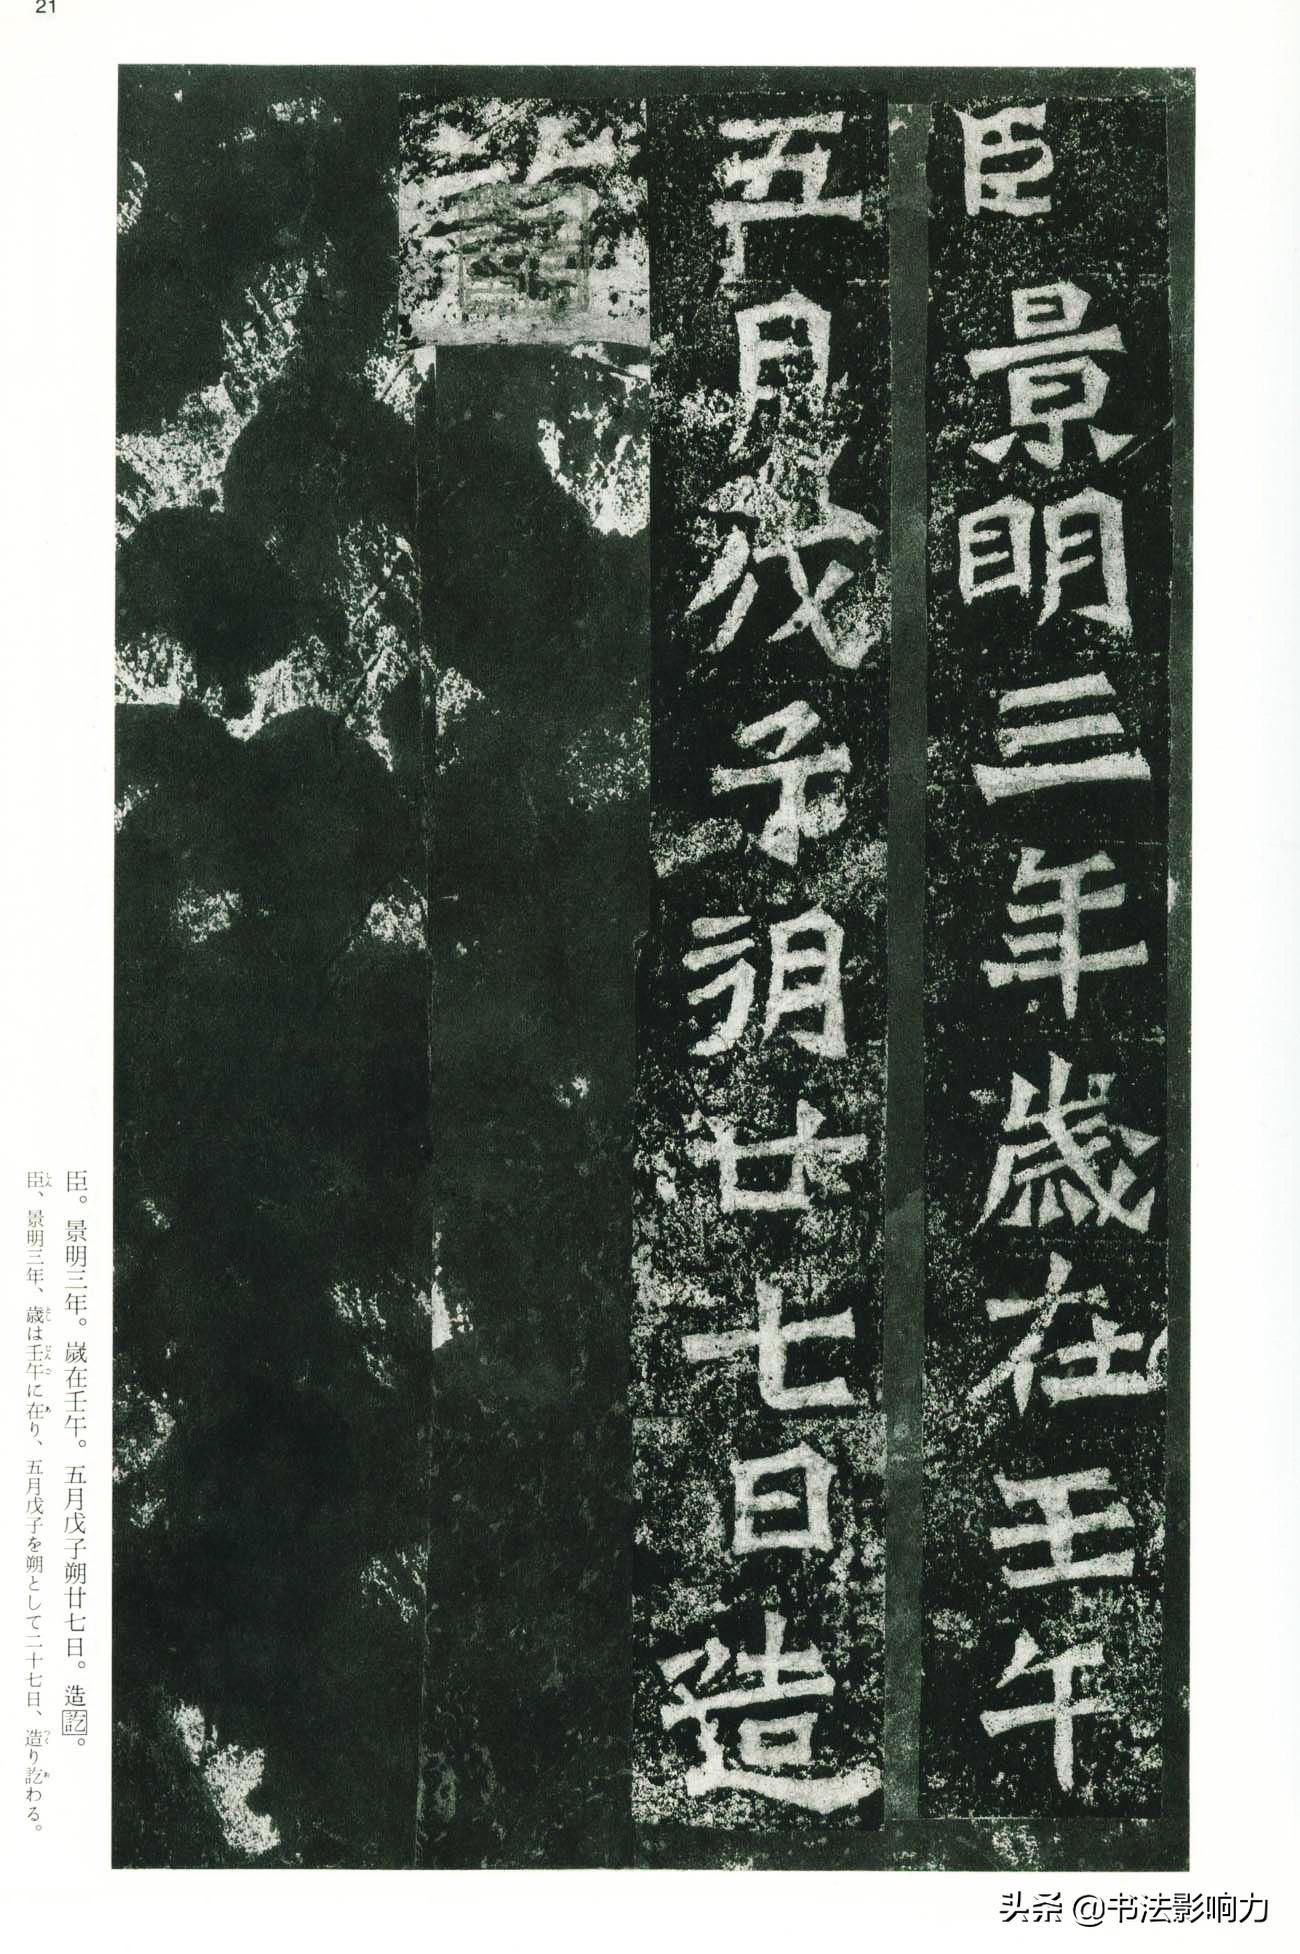 21
臣景明三年歲在壬午
五月戊子朔廿七日造
臣。景明三年。歲在壬午。五月戊子朔廿七日。造訖。
臣、景明三年、歳は壬午に在り、五月戊子を朔として二十七日、造り訖わる。
头条 @书法影响力